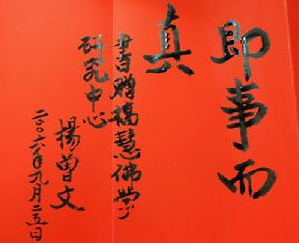 即事而
真
书赠福慧佛学
研究中心
楊曾文
二〇一六年九月二五日